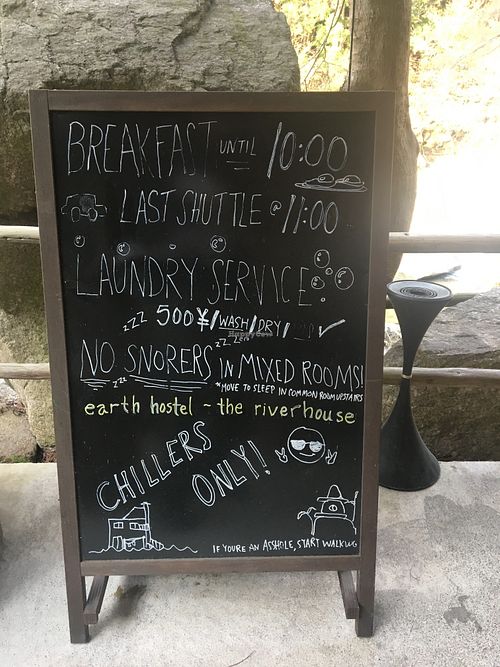 BREAKFAST UNTIL 10:00
LAST SHUTTLE @ 11:00
LAUNDRY SERVICE
zzz 500¥/WASH/DRY/
zz zzz
NO SNORERS IN MIXED ROOMS!
zzz *MOVE TO SLEEP IN COMMON ROOM UPSTAIRS
earth hostel ~ the riverhouse
CHILLERS
ONLY!
IF YOURE AN ASSHOLE, START WALKING